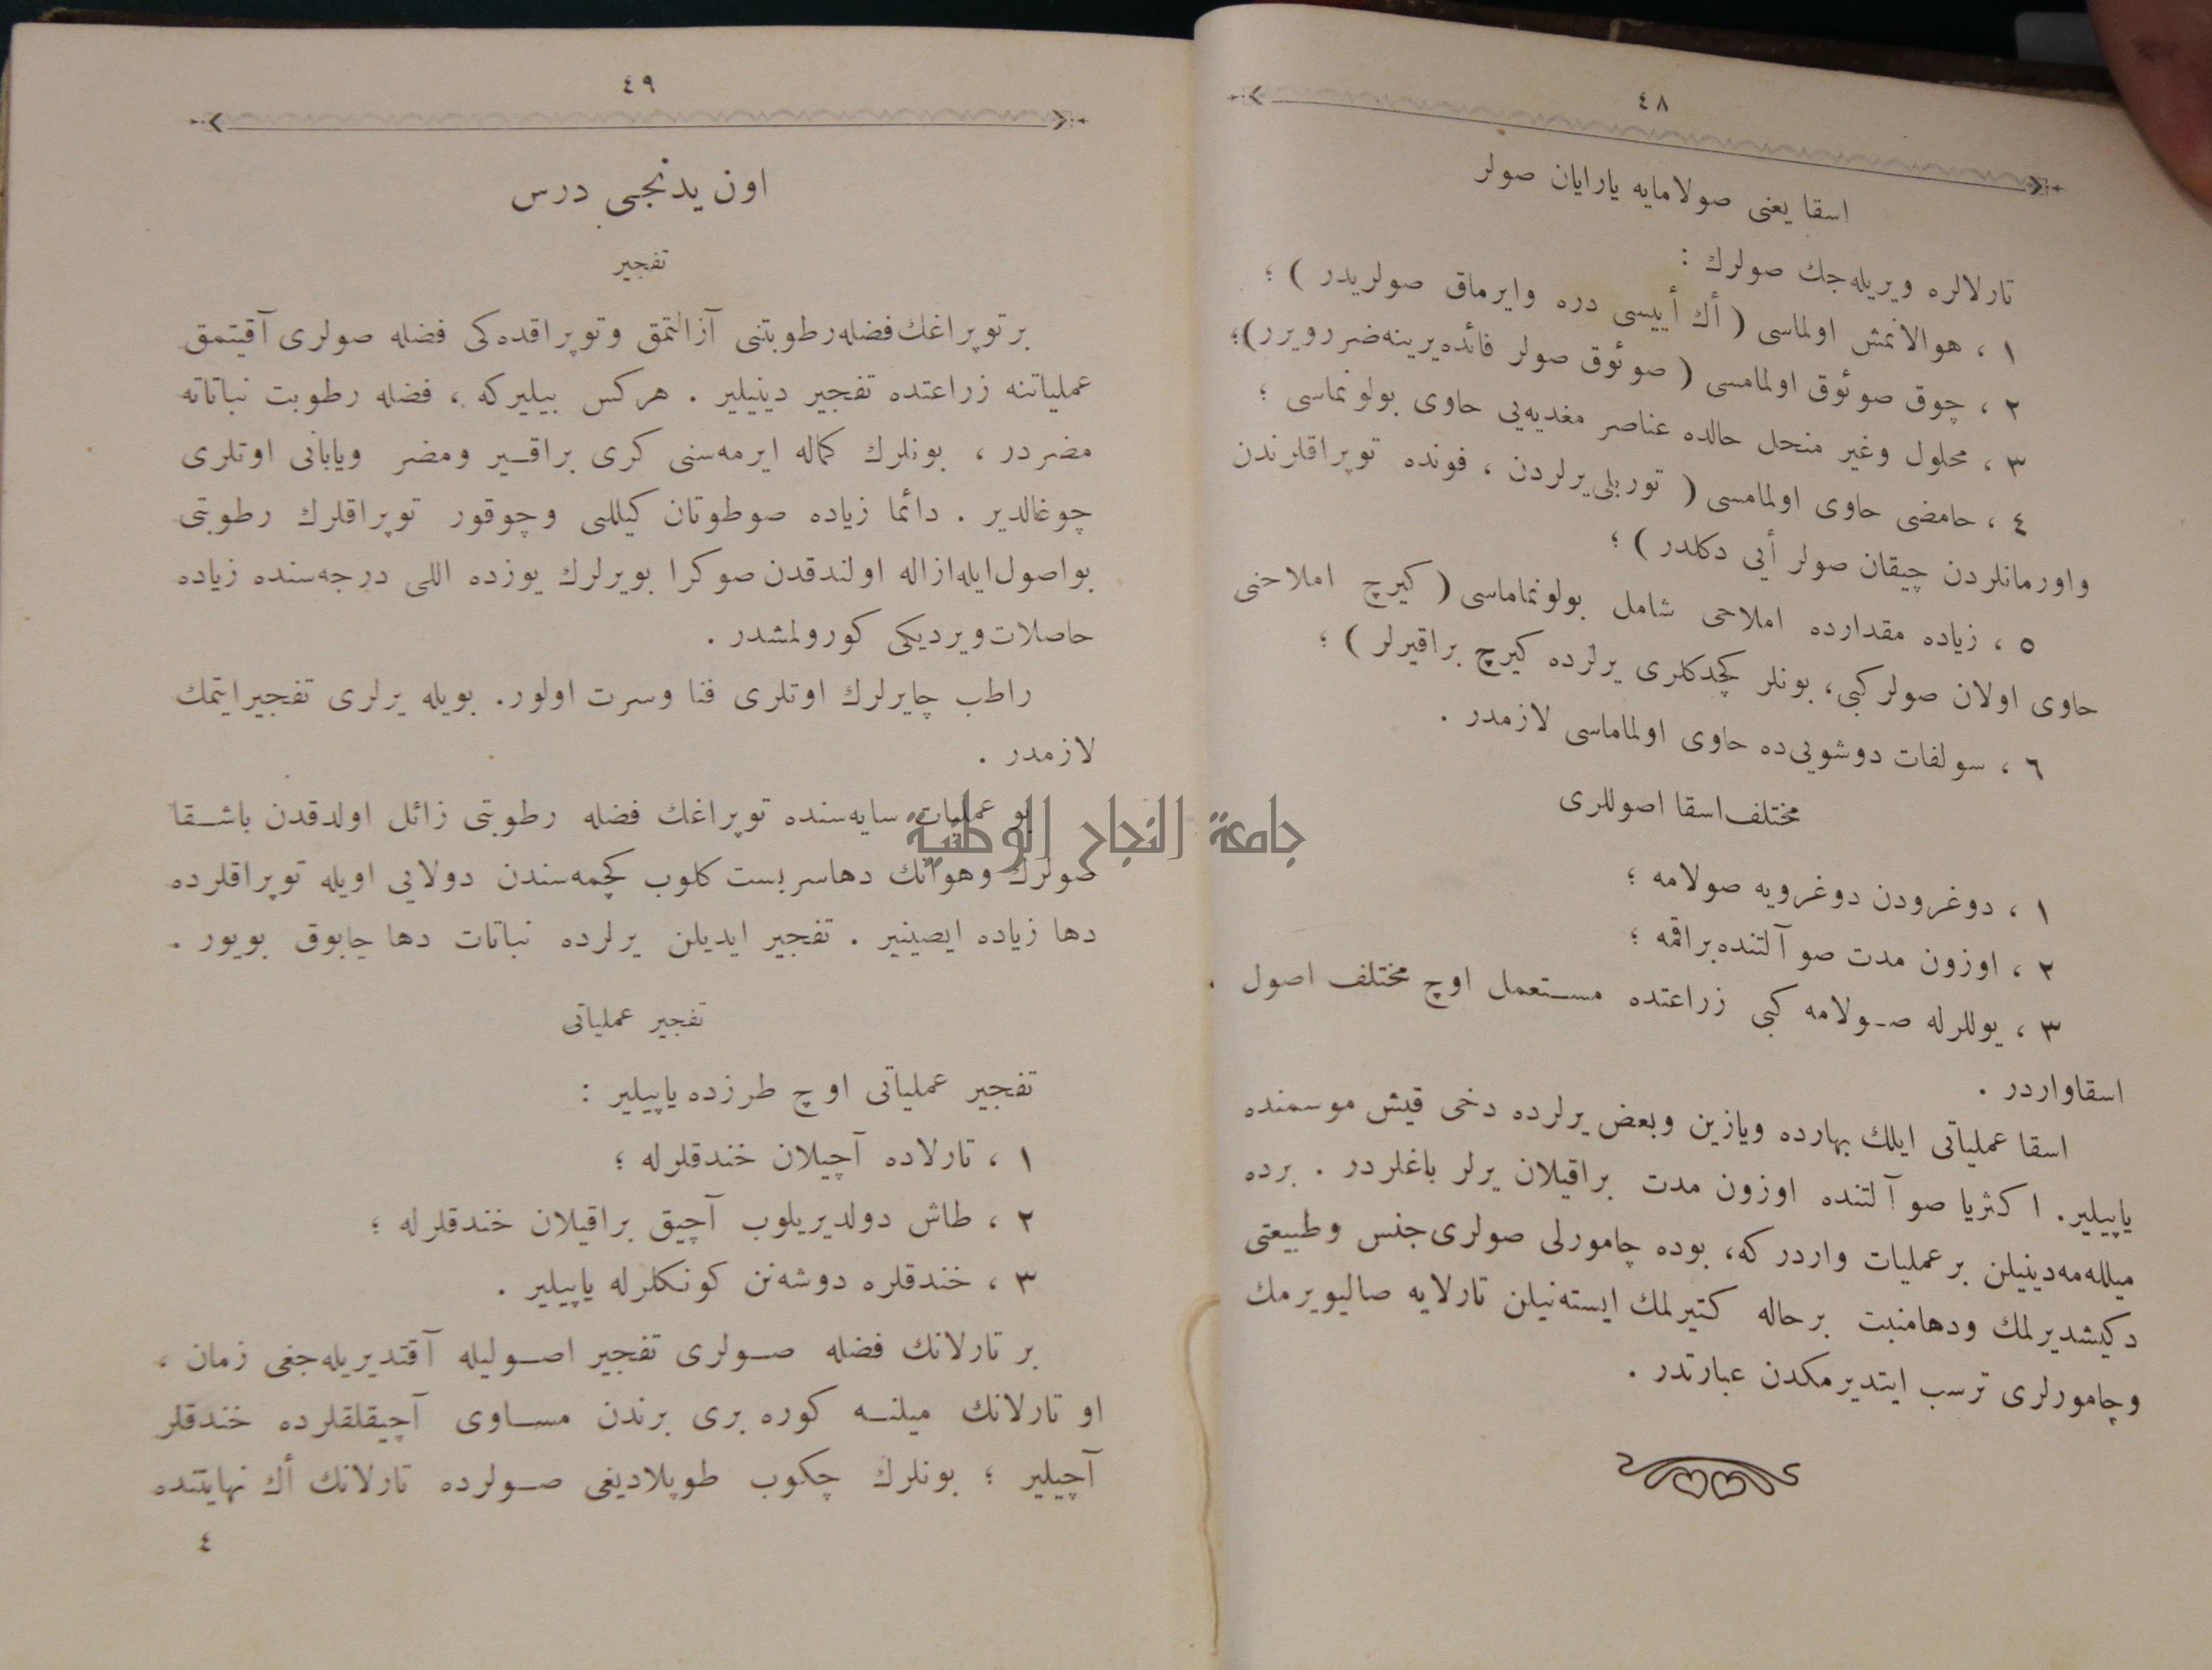 ٤٨
اسقا یعنی صولامایه یارایان صولر
تارلالره ویریله‌جك صولرك :
١ ، هوالانمش اولماسی ( أك أییسی دره وایرماق صولریدر ) ؛
٢ ، چوق صوئوق اولمامسی ( صوئوق صولر فائده‌یرینه‌ضررویرر)؛
٣ ، محلول وغیر منحل حالده عناصر مغدیه‌یی حاوی بولونماسی ؛
٤ ، حامضی حاوی اولمامسی ( توربلی‌یرلردن ، فونده توپراقلرندن
واورمانلردن چیقان صولر أیی دكلدر ) ؛
٥ ، زیاده مقدارده املاحی شامل بولونماماسی ( كیرچ املاحنی
حاوی اولان صولركبی، بونلر كچدكلری یرلرده كیرچ براقیرلر ) ؛
٦ ، سولفات دوشویی‌ده حاوی اولماماسی لازمدر .
مختلف اسقا اصوللری
١ ، دوغرودن دوغرویه صولامه ؛
٢ ، اوزون مدت صو آلتنده‌براقمه ؛
٣ ، یوللرله صولامه كبی زراعتده مستعمل اوچ مختلف اصول
اسقاواردر .
اسقا عملیاتی ایلك بهارده ویازین وبعض یرلرده دخی قیش موسمنده
یاپیلیر. اكثریا صو آلتنده اوزون مدت براقیلان یرلر باغلردر . برده
میلله‌مه‌دینیلن برعملیات واردركه، بوده چامورلی صولری جنس وطبیعتی
دكیشدیرلمك ودهامنبت برحاله كتیرلمك ایسته‌نیلن تارلایه صالیویرمك
وچامورلری ترسب ایتدیرمكدن عبارتدر .
٤٩
اون یدنجی درس
تفجیر
برتوپراغك‌فضله‌رطوبتنی آزالتمق وتوپراقده‌كی فضله صولری آقیتمق
عملیاتنه زراعتده تفجیر دینیلیر . هركس بیلیركه ، فضله رطوبت نباتاته
مضردر ، بونلرك كماله ایرمه‌سنی كری براقیر ومضر ویابانی اوتلری
چوغالدیر . دائما زیاده صوطوتان كیللی وچوقور توپراقلرك رطوبتی
بواصول‌ایله‌ازاله اولندقدن صوكرا بویرلرك یوزده اللی درجه‌سنده زیاده
حاصلات‌ویردیكی كورولمشدر .
راطب چایرلرك اوتلری فنا وسرت اولور. بویله یرلری تفجیرایتمك
لازمدر .
بو عملیات سایه‌سنده توپراغك فضله رطوبتی زائل اولدقدن باشقا
صولرك وهوانك دهاسربست كلوب كچمه‌سندن دولایی اویله توپراقلرده
دها زیاده ایصینیر . تفجیر ایدیلن یرلرده نباتات دها چابوق بویور .
تفجیر عملیاتی
تفجیر عملیاتی اوچ طرزده یاپیلیر :
١ ، تارلاده آچیلان خندقلرله ؛
٢ ، طاش دولدیریلوب آچیق براقیلان خندقلرله ؛
٣ ، خندقلره دوشه‌نن كونكلرله یاپیلیر .
بر تارلانك فضله صولری تفجیر اصولیله آقتدیریله‌جغی زمان ،
او تارلانك میلنه كوره بری برندن مساوی آچیقلقلرده خندقلر
آچیلیر ؛ بونلرك چكوب طوپلادیغی صولرده تارلانك أك نهایتنده
٤
جامعة النجاح الوطنية